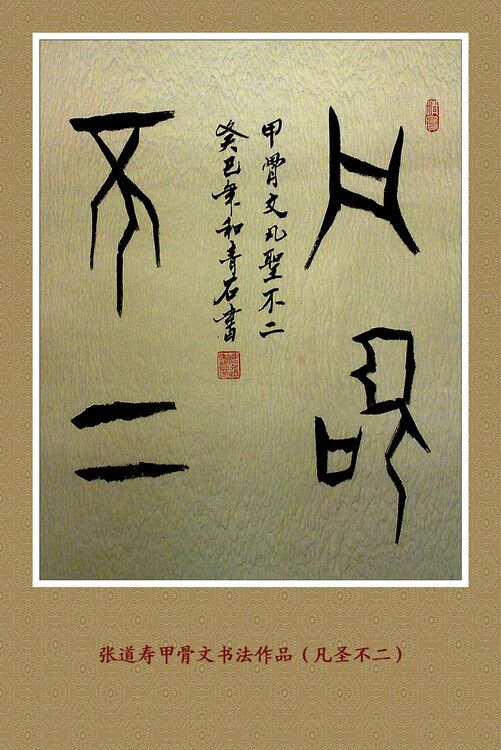 凡聖
不二
甲骨文凡聖不二
癸巳年和青石書
张道寿甲骨文书法作品（凡圣不二）